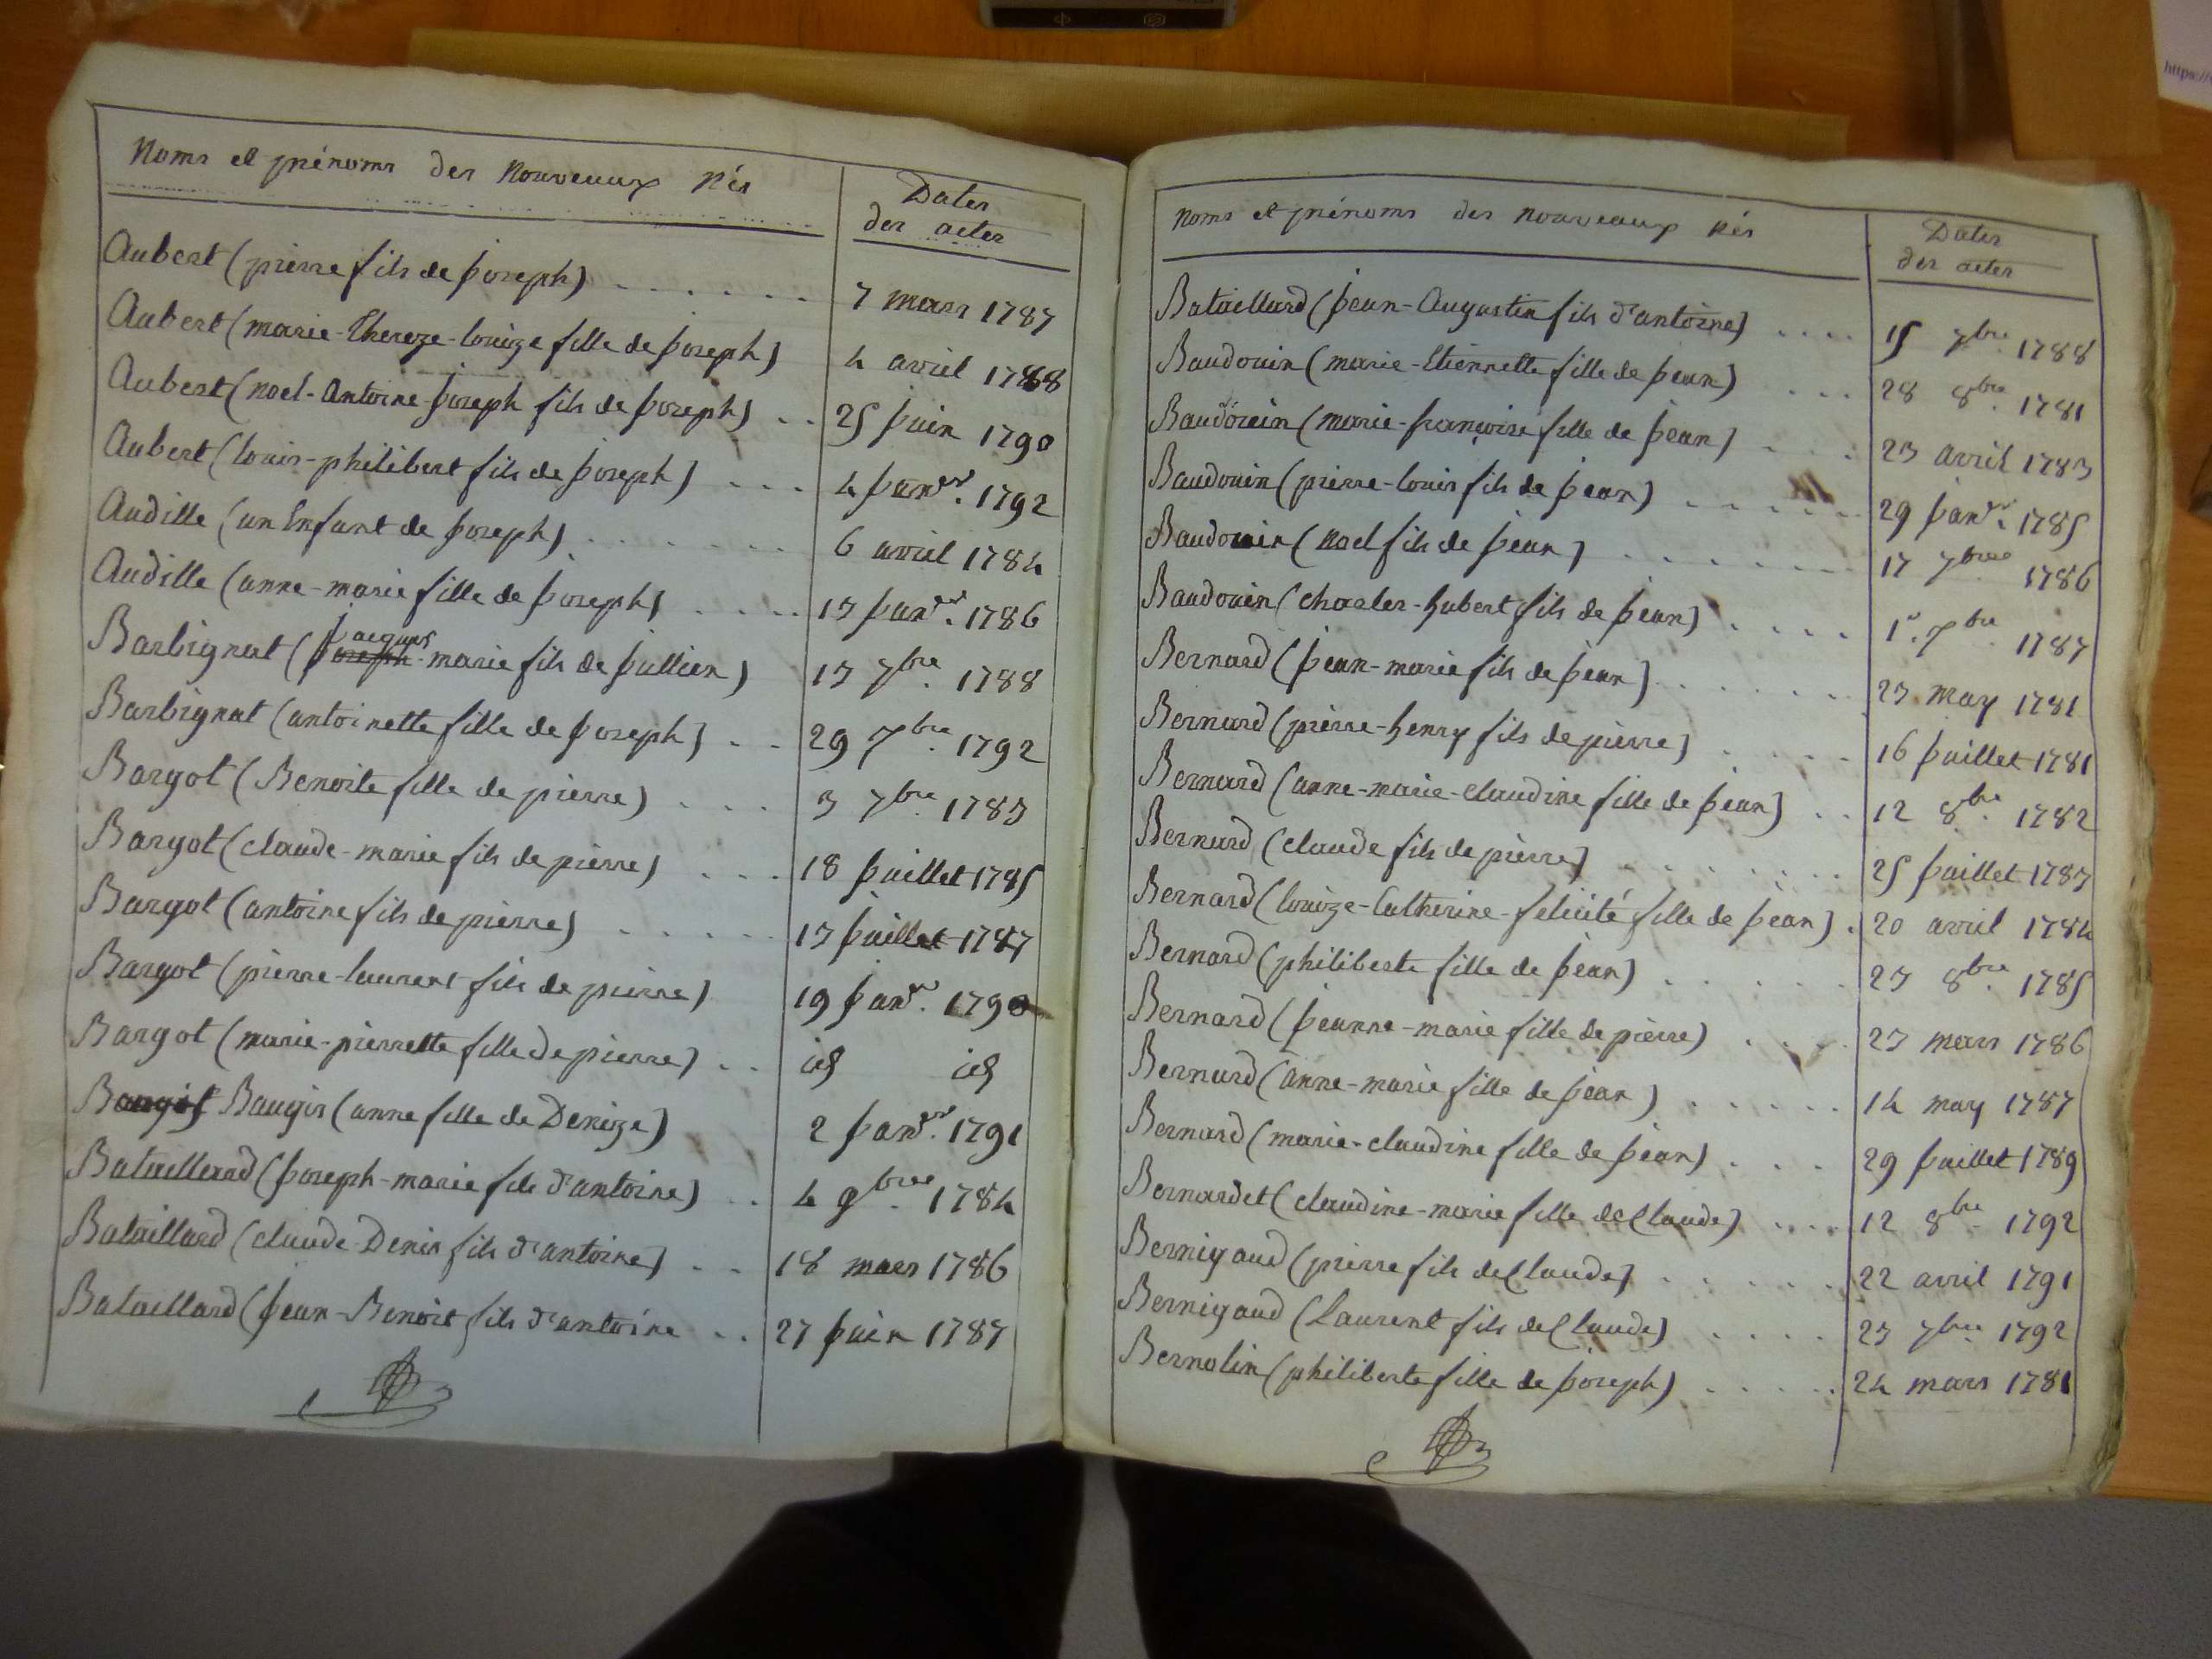 Noms et prénoms des Nouveaux Nés
Dates
des actes
Aubert (pierre fils de Joseph) . . . . . . . 7 mars 1787
Aubert (marie-Thereze-louize fille de Joseph) 4 avril 1788
Aubert (noel-Antoine-Joseph fils de Joseph) . . 25 Juin 1790
Aubert (louis-philibert fils de Joseph) . . . 4 Janver. 1792
Audille (un Enfant de Joseph) . . . . . . . 6 avril 1784
Audille (anne-marie fille de Joseph) . . . . . 13 Janver. 1786
Jacques
Barbignat (Joseph-marie fils de Jullien) 13 7bre. 1788
Barbignat (antoinette fille de Joseph) . . . 29 7bre. 1792
Bargot (Benoite fille de pierre) . . . . 3 7bre. 1783
Bargot (claude-marie fils de pierre) . . . . 18 Juillet 1785
Bargot (antoine fils de pierre) . . . . . 13 Juillet 1787
Bargot (pierre-laurent fils de pierre) 19 Janver. 1790
Bargot (marie-pierrette fille de pierre) . . id id
Baugis (anne fille de Denize) 2 Janver. 1791
Bataillard (Joseph-marie fils d'antoine) . . 4 9bre. 1784
Bataillard (claude-Denis fils d'antoine) . . 18 mars 1786
Bataillard (Jean-Benoit fils d'antoine . . 27 Juin 1787
Noms et prénoms des nouveaux nés
Dates
des actes
Bataillard (Jean-Augustin fils d'antoine) . . . . 15 7bre. 1788
Baudouin (marie-Etiennette fille de Jean) . . . 28 8bre. 1781
Baudouin (marie-françoise fille de Jean) . . . 23 avril 1783
Baudouin (pierre-louis fils de Jean) . . . . . . 29 Janver. 1785
Baudouin (noel fils de Jean) . . . . . . . 17 7bre 1786
Baudouin (charles-hubert fils de Jean) . . . . 1er. 7bre. 1787
Bernard (Jean-marie fils de Jean) . . . . . . 23 may 1781
Bernard (pierre-henry fils de pierre) . . . . . 16 Juillet 1781
Bernard (anne-marie-claudine fille de Jean) . . 12 8bre. 1782
Bernard (claude fils de pierre) . . . . . . . 25 Juillet 1783
Bernard (louize-Catherine-felicité fille de Jean) . 20 avril 1784
Bernard (philiberte fille de Jean) . . . . . . 23 8bre. 1785
Bernard (Jeanne-marie fille de pierre) . . . . 23 mars 1786
Bernard (anne-marie fille de Jean) . . . . . 14 may 1787
Bernard (marie-claudine fille de Jean) . . . 29 Juillet 1789
Bernardet (claudine-marie fille de Claude) . . . . 12 8bre. 1792
Bernigaud (pierre fils de Claude) . . . . . . 22 avril 1791
Bernigaud (Laurent fils de Claude) . . . . 23 7bre. 1792
Bernolin (philiberte fille de Joseph) . . . . . 24 mars 1781
https://